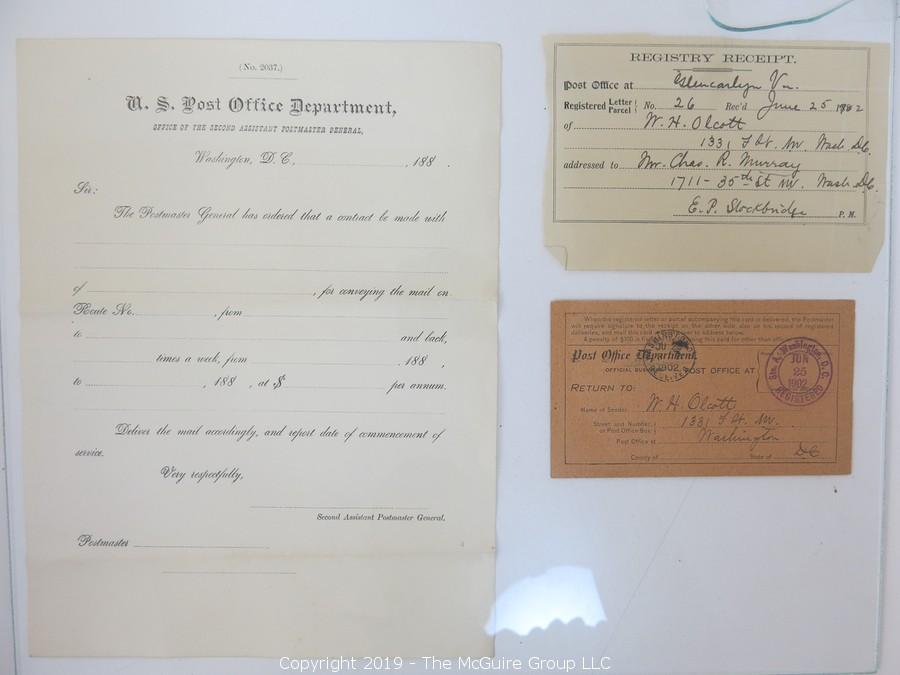 (No. 2037.)
U. S. Post Office Department,
OFFICE OF THE SECOND ASSISTANT POSTMASTER GENERAL,
Washington, D. C., , 188 .
Sir:
The Postmaster General has ordered that a contract be made with
of , for conveying the mail on
Route No. , from
to and back,
times a week, from , 188 ,
to , 188 , at $ per annum.
Deliver the mail accordingly, and report date of commencement of
service.
Very respectfully,
Second Assistant Postmaster General.
Postmaster
REGISTRY RECEIPT.
Post Office at Glencarlyn Va.
Registered Letter Parcel No. 26 Rec'd June 25 1902
of W. H. Olcott
1331 F St. NW. Wash. D.C.
addressed to Mr. Chas. R. Murray
1711 - 35th St NW. Wash D.C.
E. P. Stockbridge P. M.
When the registered letter or parcel accompanying this card is delivered, the Postmaster
will require signature to the receipt on the other side, also on his record of registered
deliveries, and mail this card to address below.
A penalty of $300 is using this card for other than
Post Office Department.
OFFICIAL
POST OFFICE AT
1902
Sta. A. Washington, D.C.
JUN
25
1902
REGISTERED
RETURN TO:
Name of Sender W. H. Olcott
Street and Number, or Post Office Box 1331 F St. NW.
Post Office at Washington
County of State of DC
Copyright 2019 - The McGuire Group LLC